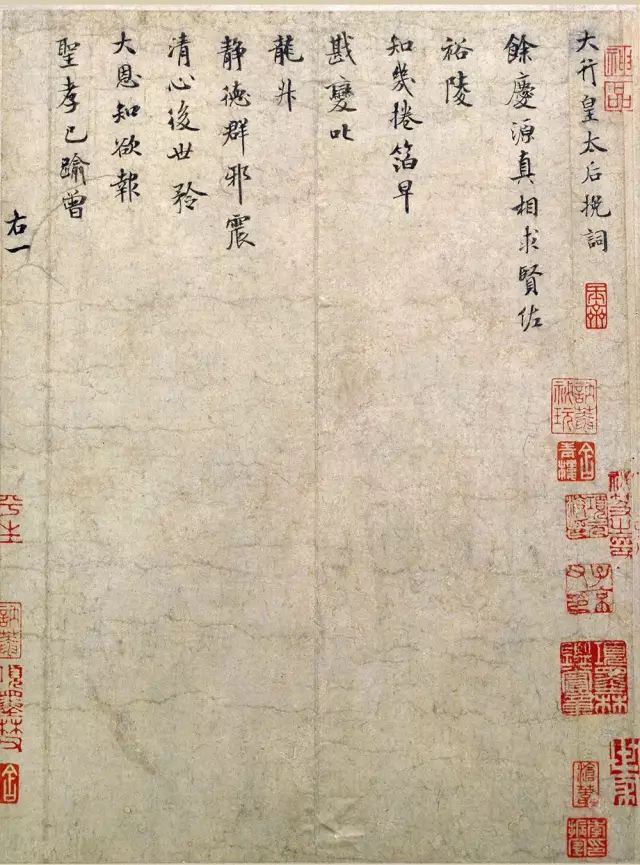 大行皇太后挽詞
餘慶源真相求賢佐
裕陵
知幾捲箔早
戡變叱
龍升
静德群邪震
清心後世矜
大恩知欲報
聖孝已踰曾
右一
神品
平生